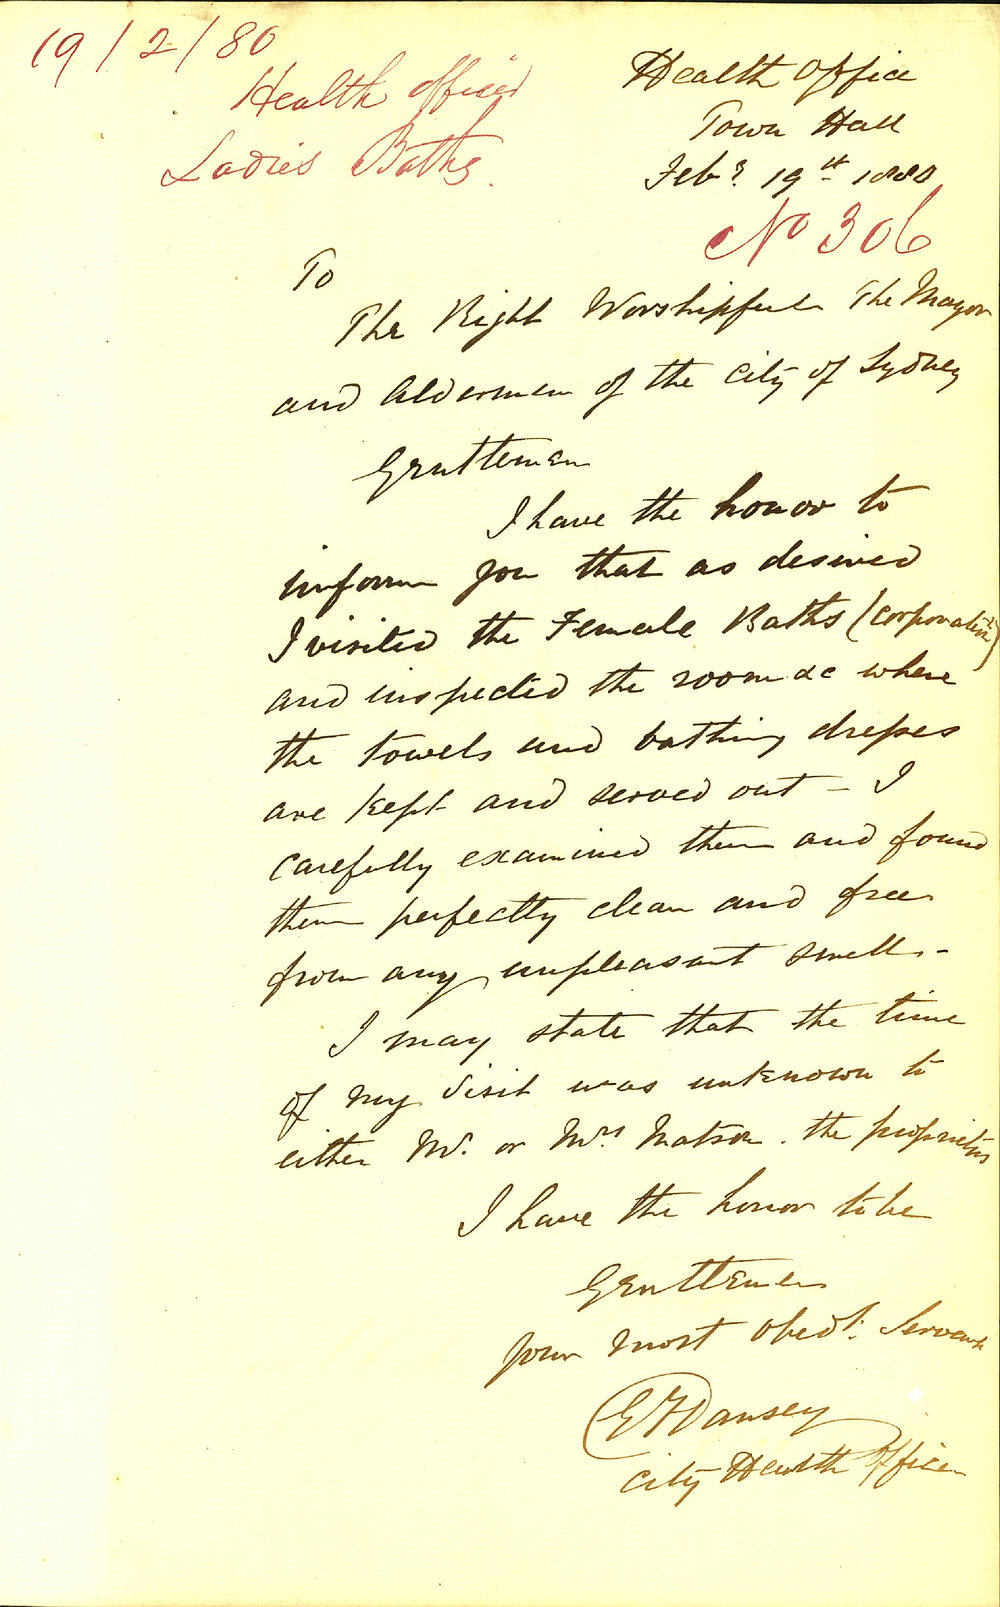 19/2/80
Health officer
Ladies Baths.
Health Office
Town Hall
Feby. 19th 1880
No 306
To
The Right Worshipful The Mayor
and Aldermen of the City of Sydney
Gentlemen
I have the honor to
inform you that as desired
I visited the Female Baths (Corporation)
and inspected the room &c where
the towels and bathing dresses
are kept and served out – I
carefully examined them and found
them perfectly clean and free
from any unpleasant smell. –
I may state that the time
of my visit was unknown to
either Mr. or Mrs Matson. the proprietors
I have the honor to be
Gentlemen
Your most obedt. Servant
G F Dansey
City Health Officer